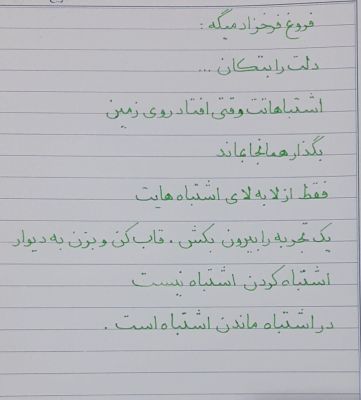 فروغ فرخزاد میگه :
دلت را بتکان ...
اشتباهاتت وقتی افتاد روی زمین
بگذار همانجا بماند
فقط از لا به لای اشتباه هایت
یک تجربه را بیرون بکش ، قاب کن و بزن به دیوار
اشتباه کردن اشتباه نیست
در اشتباه ماندن اشتباه است .